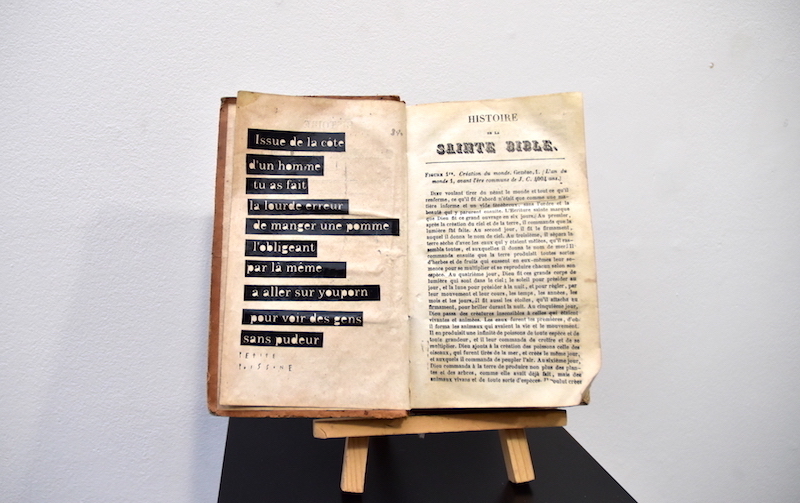 Issue de la côte
d'un homme
tu as fait
la lourde erreur
de manger une pomme
l'obligeant
par là même
a aller sur youporn
pour voir des gens
sans pudeur
HISTOIRE
DE LA
SAINTE BIBLE.
Figure 1re. Création du monde. Genèse, 1. [L'an du
monde 1, avant l'ère commune de J. C. 4004 ans.]
Dieu voulant tirer du néant le monde et tout ce qu'il
renferme, ce qu'il fit d'abord n'était que comme une ma-
tière informe et un vide ténébreux, sans l'ordre et la
beauté qui y parurent ensuite. L'Écriture sainte marque
que Dieu fit ce grand ouvrage en six jours. Au premier,
après la création du ciel et de la terre, il commanda que la
lumière fût faite. Au second jour, il fit le firmament,
auquel il donna le nom de ciel. Au troisième, il sépara la
terre sèche d'avec les eaux qui y étaient mêlées, qu'il ras-
sembla toutes, et auxquelles il donna le nom de mer. Il
commanda ensuite que la terre produisît toutes sortes
d'herbes et de fruits qui eussent en eux-même leur se-
mence pour se multiplier et se reproduire chacun selon son
espèce. Au quatrième jour, Dieu fit ces grands corps de
lumière qui sont dans le ciel; le soleil pour présider au
jour, et la lune pour présider à la nuit, et pour régler, par
leur mouvement et leur cours, les temps, les années, les
mois et les jours. Il fit aussi les étoiles, qu'il attacha au
firmament, pour briller durant la nuit. Au cinquième jour,
Dieu
vivantes et animées. Les eaux furent les premières, d'où
il forma les animaux qui avaient la vie et le mouvement.
Il en produisit une infinité de poissons de toute espèce et de
toute grandeur, et il leur commanda de croître et de se
multiplier. Dieu ajouta à la création des poissons celle des
oiseaux, qui furent tirés de la mer, et créés le même jour,
et auxquels il commanda de peupler l'air. Au sixième jour,
Dieu commanda à la terre de produire non plus des plan-
tes et des arbres, comme elle avait déjà fait, mais des
animaux vivans et de toute sorte d'espèces. Il voulut créer